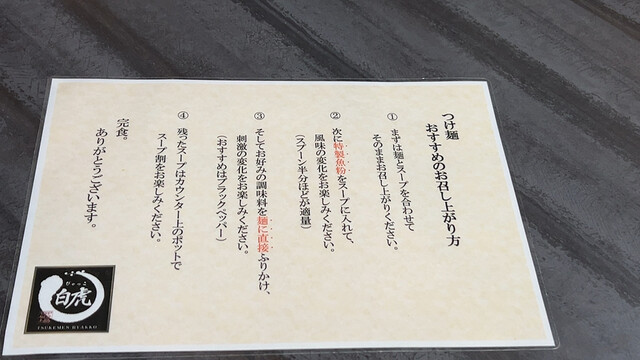 つけ麺
おすすめのお召し上がり方
① まずは麺とスープを合わせて
そのままお召し上がりください。
② 次に特製魚粉をスープに入れて、
風味の変化をお楽しみください。
(スプーン半分ほどが適量)
③ そしてお好みの調味料を麺に直接ふりかけ、
刺激の変化をお楽しみください。
(おすすめはブラックペッパー)
④ 残ったスープはカウンター上のポットで
スープ割をお楽しみください。
完食。
ありがとうございます。
白虎
TSUKEMEN BYAKKO